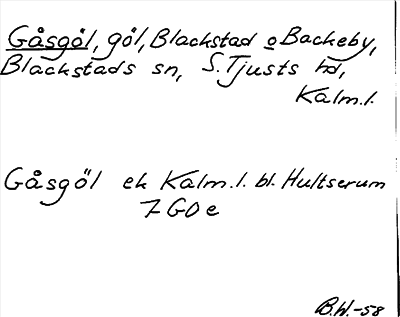 Gåsgöl, göl, Blackstad o Backeby,
Blackstads sn, S. Tjusts hd,
Kalm. l.
Gåsgöl ek Kalm. l. bl. Hultserum
7 GO e
B.W.-58